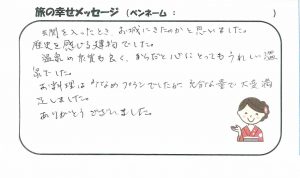 旅の幸せメッセージ (ペンネーム : )
玄関を入ったとき、お城にきたのかと思いました。
歴史を感じる建物でした。
温泉の泉質も良く、からだと心にとってもうれしい温
泉でした。
お料理は少なめプランでしたが充分な量で大変満
足しました。
ありがとうございました。